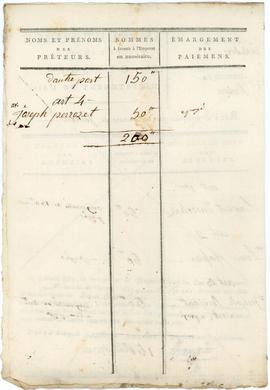 NOMS ET PRÉNOMS
DES
PRÊTEURS.
SOMMES
à fournir à l'Emprunt
en numéraire.
ÉMARGEMENT
DES
PAIEMENS.
150"
art 4
joseph 50"
200"